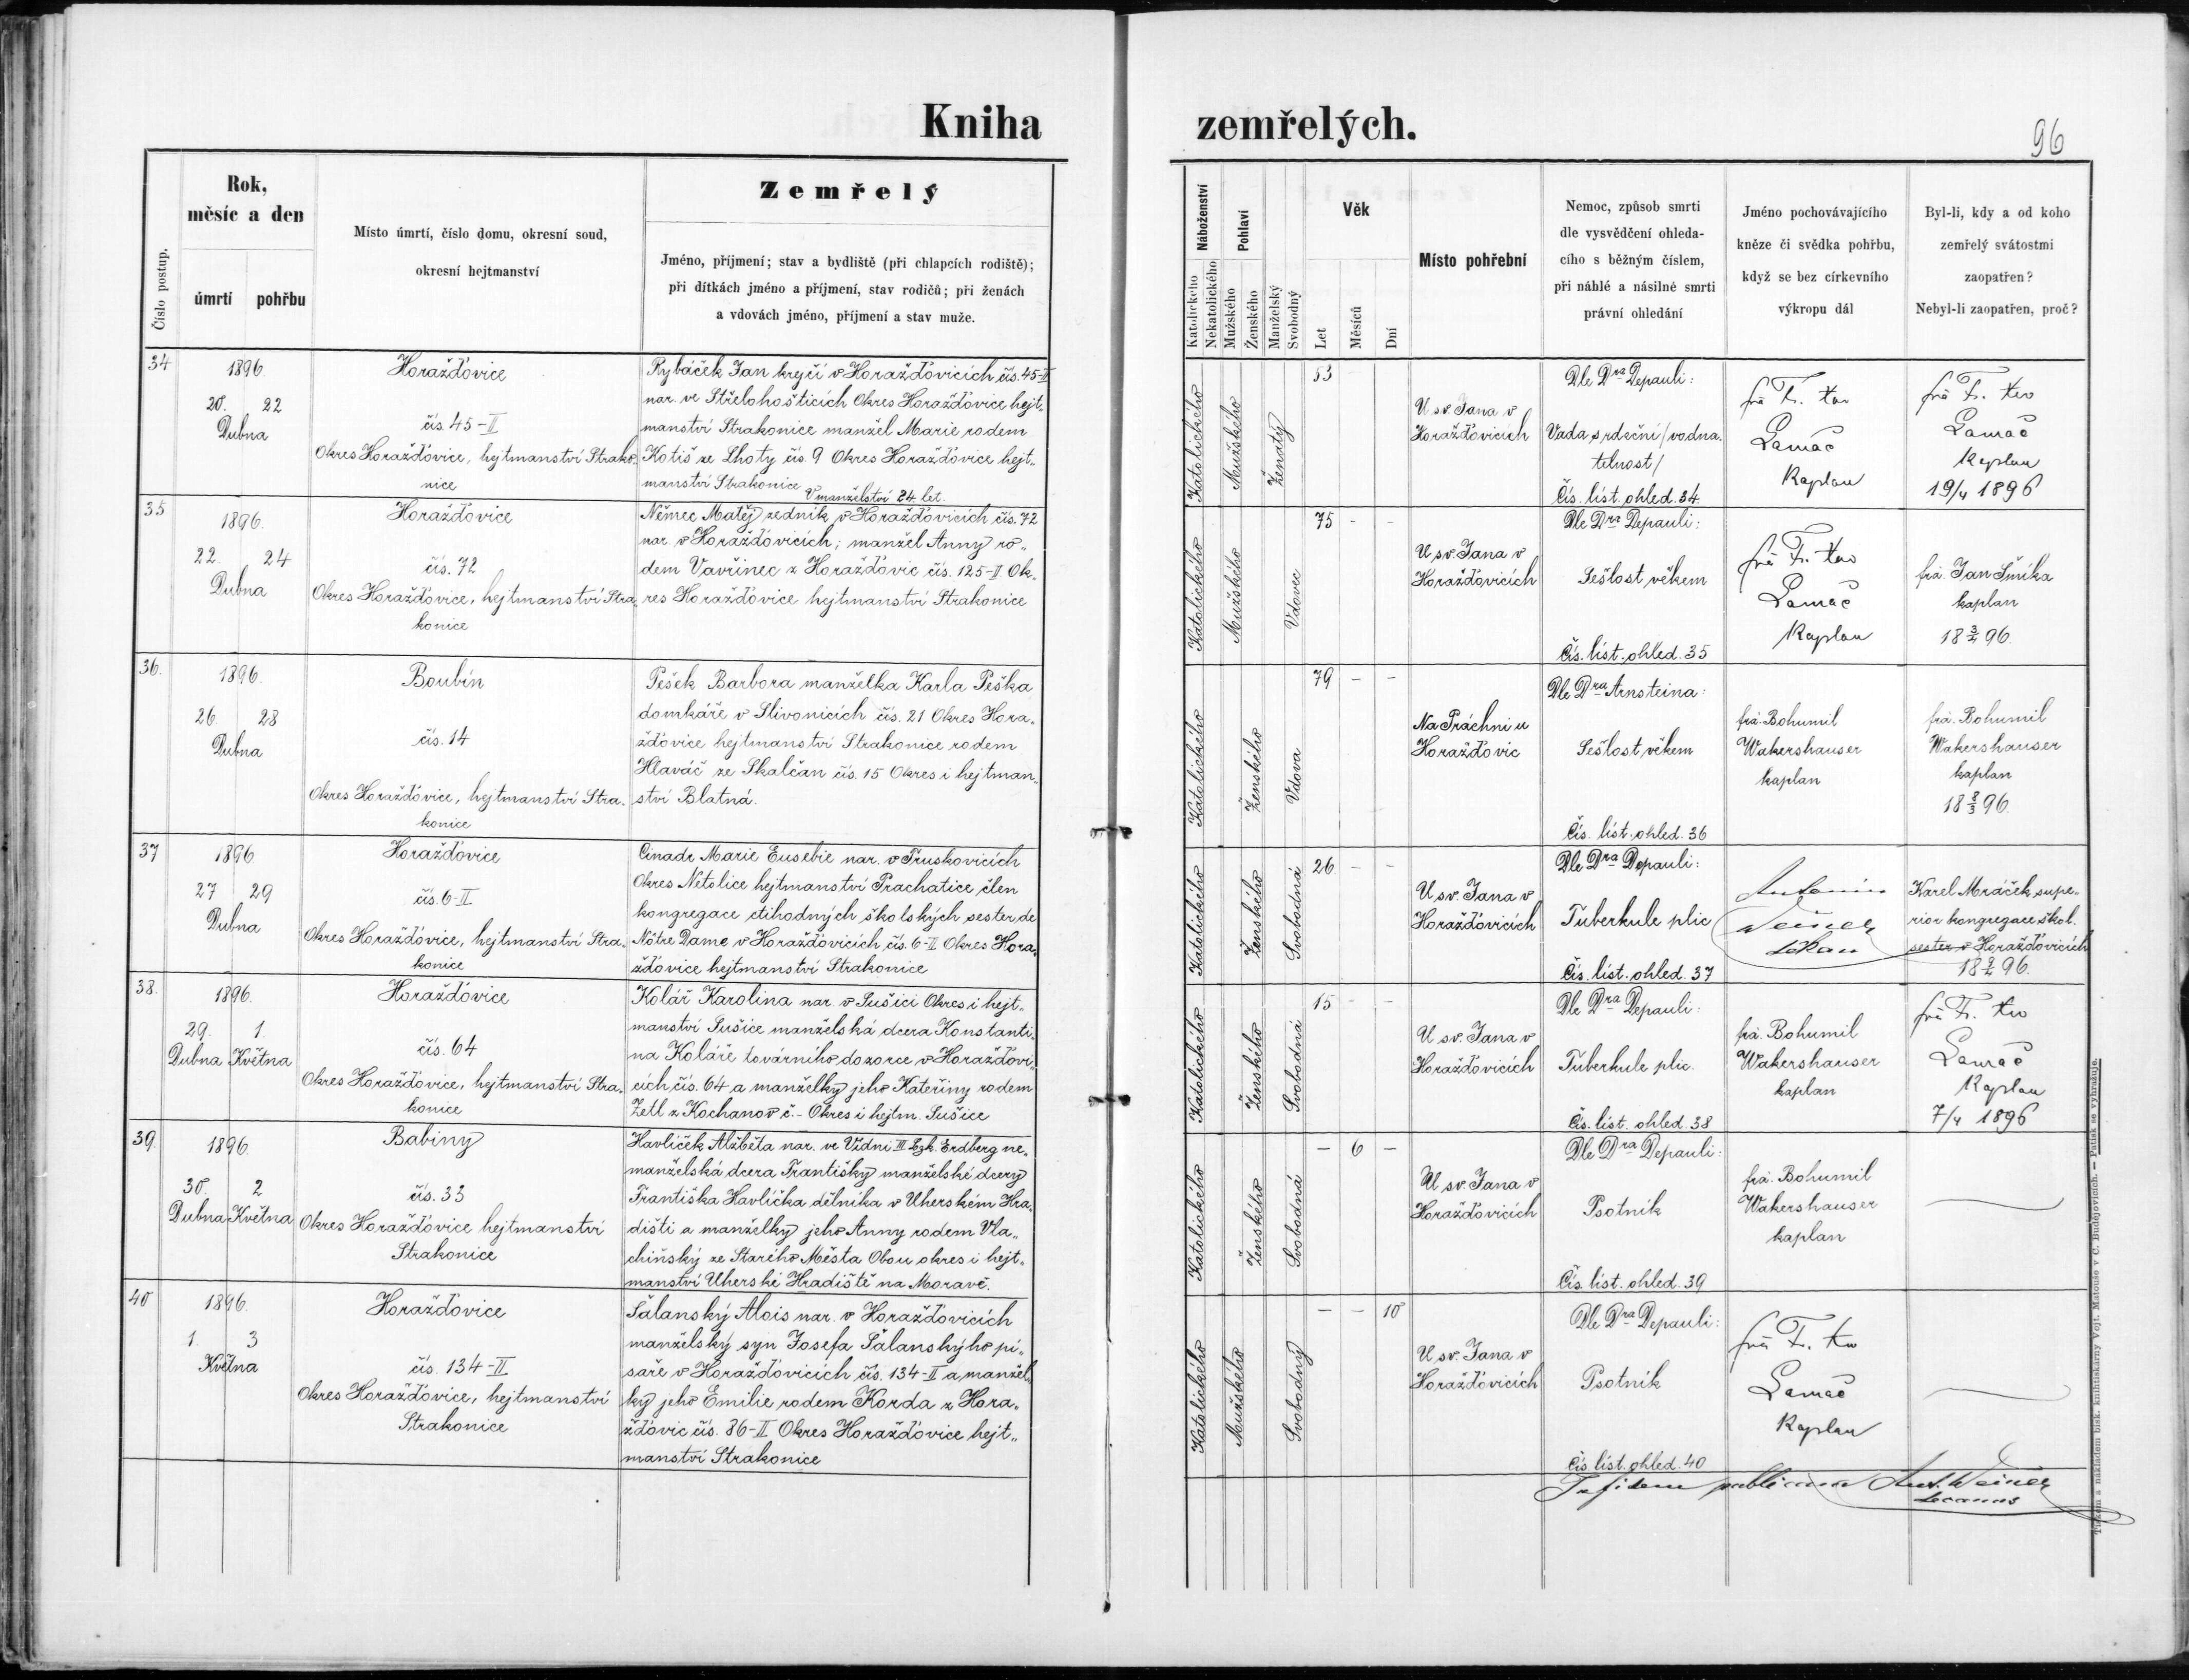 Kniha
zemřelých.
96
Číslo postup.
Rok,
měsíc a den
úmrtí
pohřbu
Místo úmrtí, číslo domu, okresní soud,
okresní hejtmanství
Zemřelý
Jméno, příjmení; stav a bydliště (při chlapcích rodiště);
při dítkách jméno a příjmení, stav rodičů; při ženách
a vdovách jméno, příjmení a stav muže.
Náboženství
Katolického
Nekatolického
Pohlaví
Mužského
Ženského
Manželský
Svobodný
Věk
Let
Měsíců
Dní
Místo pohřební
Nemoc, způsob smrti
dle vysvědčení ohleda-
cího s běžným číslem,
při náhlé a násilné smrti
právní ohledání
Jméno pochovávajícího
kněze či svědka pohřbu,
když se bez církevního
výkropu dál
Byl-li, kdy a od koho
zemřelý svátostmi
zaopatřen?
Nebyl-li zaopatřen, proč?
34
1896.
20. 22
Dubna
Horažďovice
čís. 45-II
Okres Horažďovice, hejtmanství Strako„
nice
Rybáček Jan krejčí v Horažďovicích čís. 45-II
nar. ve Střelohošticích Okres Horažďovice hejt„
manství Strakonice manžel Marie rodem
Kotiš ze Lhoty čís. 9 Okres Horažďovice hejt„
manství Strakonice
V manželství 24 let.
Katolického
Mužského
Ženatý
53
U sv. Jana v
Horažďovicích
Dle Dra Depauli:
Vada srdeční /vodna„
telnost/
Čís. líst. ohled. 34
fra Fr.
Lamač
Kaplan
fra Fr.
Lamač
Kaplan
19/4 1896
35
1896.
22. 24
Dubna
Horažďovice
čís. 72
Okres Horažďovice, hejtmanství Stra„
konice
Němec Matěj zedník v Horažďovicích čís. 72
nar. v Horažďovicích; manžel Anny ro„
dem Vavřinec z Horažďovic čís. 125-II Ok„
res Horažďovice hejtmanství Strakonice
Katolického
Mužského
Vdovec
75 - -
U sv. Jana v
Horažďovicích
Dle Dra Depauli:
Sešlost věkem
Čís. líst. ohled. 35
fra Fr.
Lamač
Kaplan
fra. Jan Šmíka
kaplan
18 3/4 96.
36.
1896.
26. 28
Dubna
Boubín
čís. 14
Okres Horažďovice, hejtmanství Stra„
konice
Pešek Barbora manželka Karla Peška
domkáře v Slivonicích čís. 21 Okres Hora„
žďovice hejtmanství Strakonice rodem
Hlaváč ze Skalčan čís. 15 Okres i hejtman„
ství Blatná.
Katolického
Ženského
Vdova
79 - -
Na Práchni u
Horažďovic
Dle Dra Arnsteina:
Sešlost věkem
Čís. líst. ohled. 36
fra. Bohumil
Wakershauser
kaplan
fra. Bohumil
Wakershauser
kaplan
18 8/3 96.
37
1896
27 29
Dubna
Horažďovice
čís. 6-II
Okres Horažďovice, hejtmanství Stra„
konice
Cinadr Marie Eusebie nar. v Truskovicích
Okres Netolice hejtmanství Prachatice, člen
kongregace ctihodných školských sester de
Nôtre Dame v Horažďovicích čís. 6-II Okres Hora„
žďovice hejtmanství Strakonice
Katolického
Ženského
Svobodná
26 - -
U sv. Jana v
Horažďovicích
Dle Dra Depauli:
Tuberkule plic
Čís. líst. ohled. 37
Antonín
Weiner
děkan
Karel Mráček supe„
rior kongregace škol.
sester v Horažďovicích
96.
38.
1896.
29. 1.
Dubna Května
Horažďovice
čís. 64
Okres Horažďovice, hejtmanství Stra„
konice
Kolář Karolina nar. v Sušici Okres i hejt„
manství Sušice manželská dcera Konstanti„
na Koláře továrního dozorce v Horažďovi„
cích čís. 64 a manželky jeho Kateřiny rodem
Zetl z Kochanov č. - Okres i hejtm. Sušice
Katolického
Ženského
Svobodná
15 - -
U sv. Jana v
Horažďovicích
Dle Dra Depauli:
Tuberkule plic.
Čís. líst. ohled 38
fra. Bohumil
Wakershauser
kaplan
fra Fr.
Lamač
Kaplan
7/4 1896
39.
1896.
30. 2
Dubna Května
Babiny
čís. 33
Okres Horažďovice hejtmanství
Strakonice
Havlíček Alžběta nar. ve Vídni III Bzk. Erdberg ne„
manželská dcera Františky manželské dcery
Františka Havlíčka dělníka v Uherském Hra„
dišti a manželky jeho Anny rodem Vla„
chinský ze Starého Města Obou okres i hejt„
manství Uherské Hradiště na Moravě.
Katolického
Ženského
Svobodná
- 6 -
U sv. Jana v
Horažďovicích
Dle Dra Depauli:
Psotník
Čís. líst. ohled. 39
fra. Bohumil
Wakershauser
kaplan
40
1896.
1 3
Května
Horažďovice
čís. 134-II
Okres Horažďovice, hejtmanství
Strakonice
Šalanský Alois nar. v Horažďovicích
manželský syn Josefa Šalanskýho pí„
saře v Horažďovicích čís. 134-II a manžel„
ky jeho Emilie rodem Korda z Hora„
žďovic čís. 86-II Okres Horažďovice hejt„
manství Strakonice
Katolického
Mužského
Svobodný
- - 10
U sv. Jana v
Horažďovicích
Dle Dra Depauli:
Psotník
Čís. líst. ohled. 40
fra Fr.
Lamač
Kaplan
In fidem publicam Ant. Weiner
decanus
Tiskem a nákladem bisk. knihtiskárny Vojt. Matouše v Č. Budějovicích. — Patisk se vyhražuje.